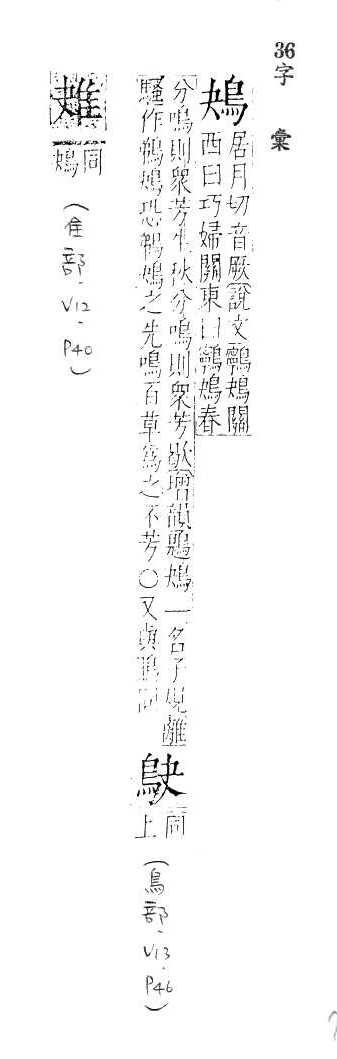 36字 彙
鴂
居月切音厥說文鸋鴂關
西曰巧婦關東曰鸋鴂春
分鳴則衆芳生秋分鳴則衆芳歇增韻鶗鴂一名子規離
騷作鵜鴂恐鵜鴂之先鳴百草爲之不芳○又與鵙同
鴃
同
上
(鳥部.V13.P46)
同
鴂
(隹部.V12.P40)